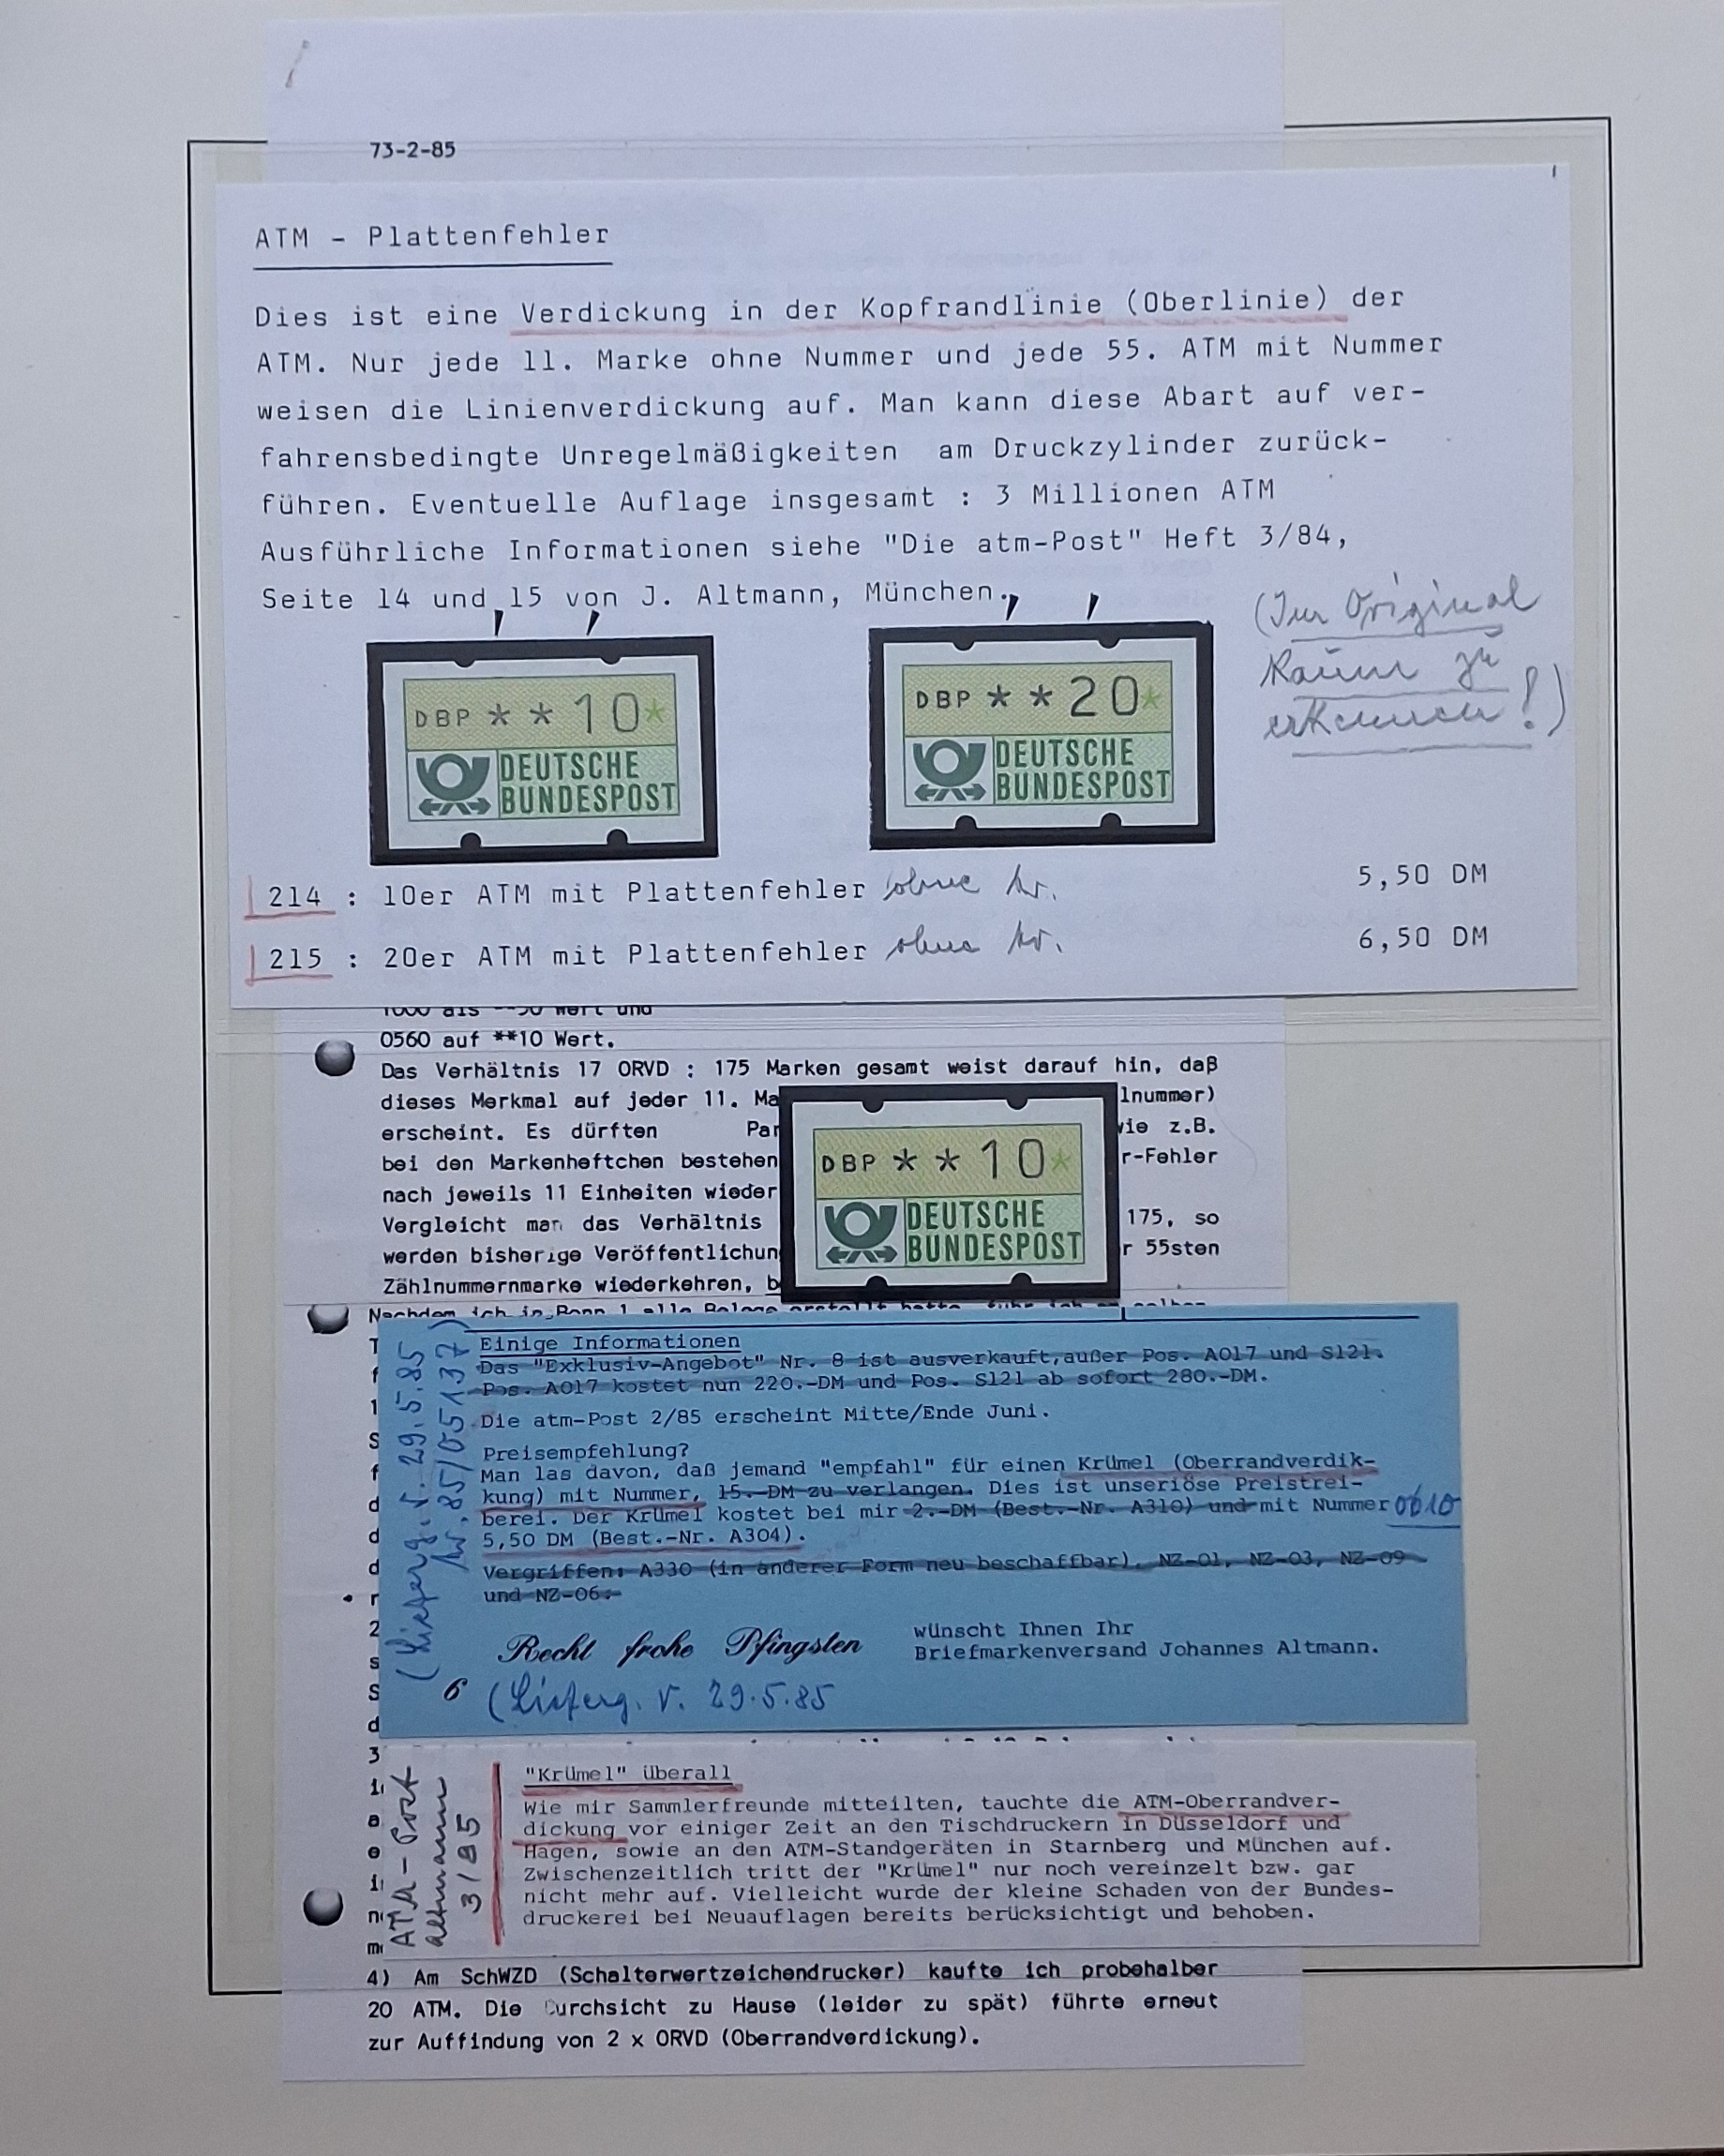 73-2-85
ATM - Plattenfehler
Dies ist eine Verdickung in der Kopfrandlinie (Oberlinie) der
ATM. Nur jede 11. Marke ohne Nummer und jede 55. ATM mit Nummer
weisen die Linienverdickung auf. Man kann diese Abart auf ver-
fahrensbedingte Unregelmäßigkeiten am Druckzylinder zurück-
führen. Eventuelle Auflage insgesamt : 3 Millionen ATM
Ausführliche Informationen siehe "Die atm-Post" Heft 3/84,
Seite 14 und 15 von J. Altmann, München.
(Im Original
kaum zu
erkennen!)
DBP **10*
DEUTSCHE
BUNDESPOST
DBP **20*
DEUTSCHE
BUNDESPOST
214 : 10er ATM mit Plattenfehler ohne Nr. 5,50 DM
215 : 20er ATM mit Plattenfehler ohne Nr. 6,50 DM
1000 als **50 Wert und
0560 auf **10 Wert.
Das Verhältnis 17 ORVD : 175 Marken gesamt weist darauf hin, daß
dieses Merkmal auf jeder 11. Ma lnummer)
erscheint. Es dürften Par wie z.B.
bei den Markenheftchen bestehen r-Fehler
nach jeweils 11 Einheiten wieder
Vergleicht man das Verhältnis 175, so
werden bisherige Veröffentlichun r 55sten
Zählnummernmarke wiederkehren, b
DBP **10*
DEUTSCHE
BUNDESPOST
Nachdem ich in Bonn 1 alle Belege erstellt hatte, fuhr ich am selben
(Lieferg. v. 29.5.85
Nr. 85/05137)
Einige Informationen
Das "Exklusiv-Angebot" Nr. 8 ist ausverkauft, außer Pos. A017 und S121.
Pos. A017 kostet nun 220.-DM und Pos. S121 ab sofort 280.-DM.
Die atm-Post 2/85 erscheint Mitte/Ende Juni.
Preisempfehlung?
Man las davon, daß jemand "empfahl" für einen Krümel (Oberrandverdik-
kung) mit Nummer, 15.-DM zu verlangen. Dies ist unseriöse Preistrei-
berei. Der Krümel kostet bei mir 2.-DM (Best.-Nr. A310) und mit Nummer 0610
5,50 DM (Best.-Nr. A304).
Vergriffen: A330 (in anderer Form neu beschaffbar), NZ-01, NZ-03, NZ-09
und NZ-06.
Recht frohe Pfingsten
wünscht Ihnen Ihr
Briefmarkenversand Johannes Altmann.
6
(Lieferg. v. 29.5.85
ATM-Post
Altmann
3/85
"Krümel" überall
Wie mir Sammlerfreunde mitteilten, tauchte die ATM-Oberrandver-
dickung vor einiger Zeit an den Tischdruckern in Düsseldorf und
Hagen, sowie an den ATM-Standgeräten in Starnberg und München auf.
Zwischenzeitlich tritt der "Krümel" nur noch vereinzelt bzw. gar
nicht mehr auf. Vielleicht wurde der kleine Schaden von der Bundes-
druckerei bei Neuauflagen bereits berücksichtigt und behoben.
4) Am SchWZD (Schalterwertzeichendrucker) kaufte ich probehalber
20 ATM. Die Durchsicht zu Hause (leider zu spät) führte erneut
zur Auffindung von 2 x ORVD (Oberrandverdickung).